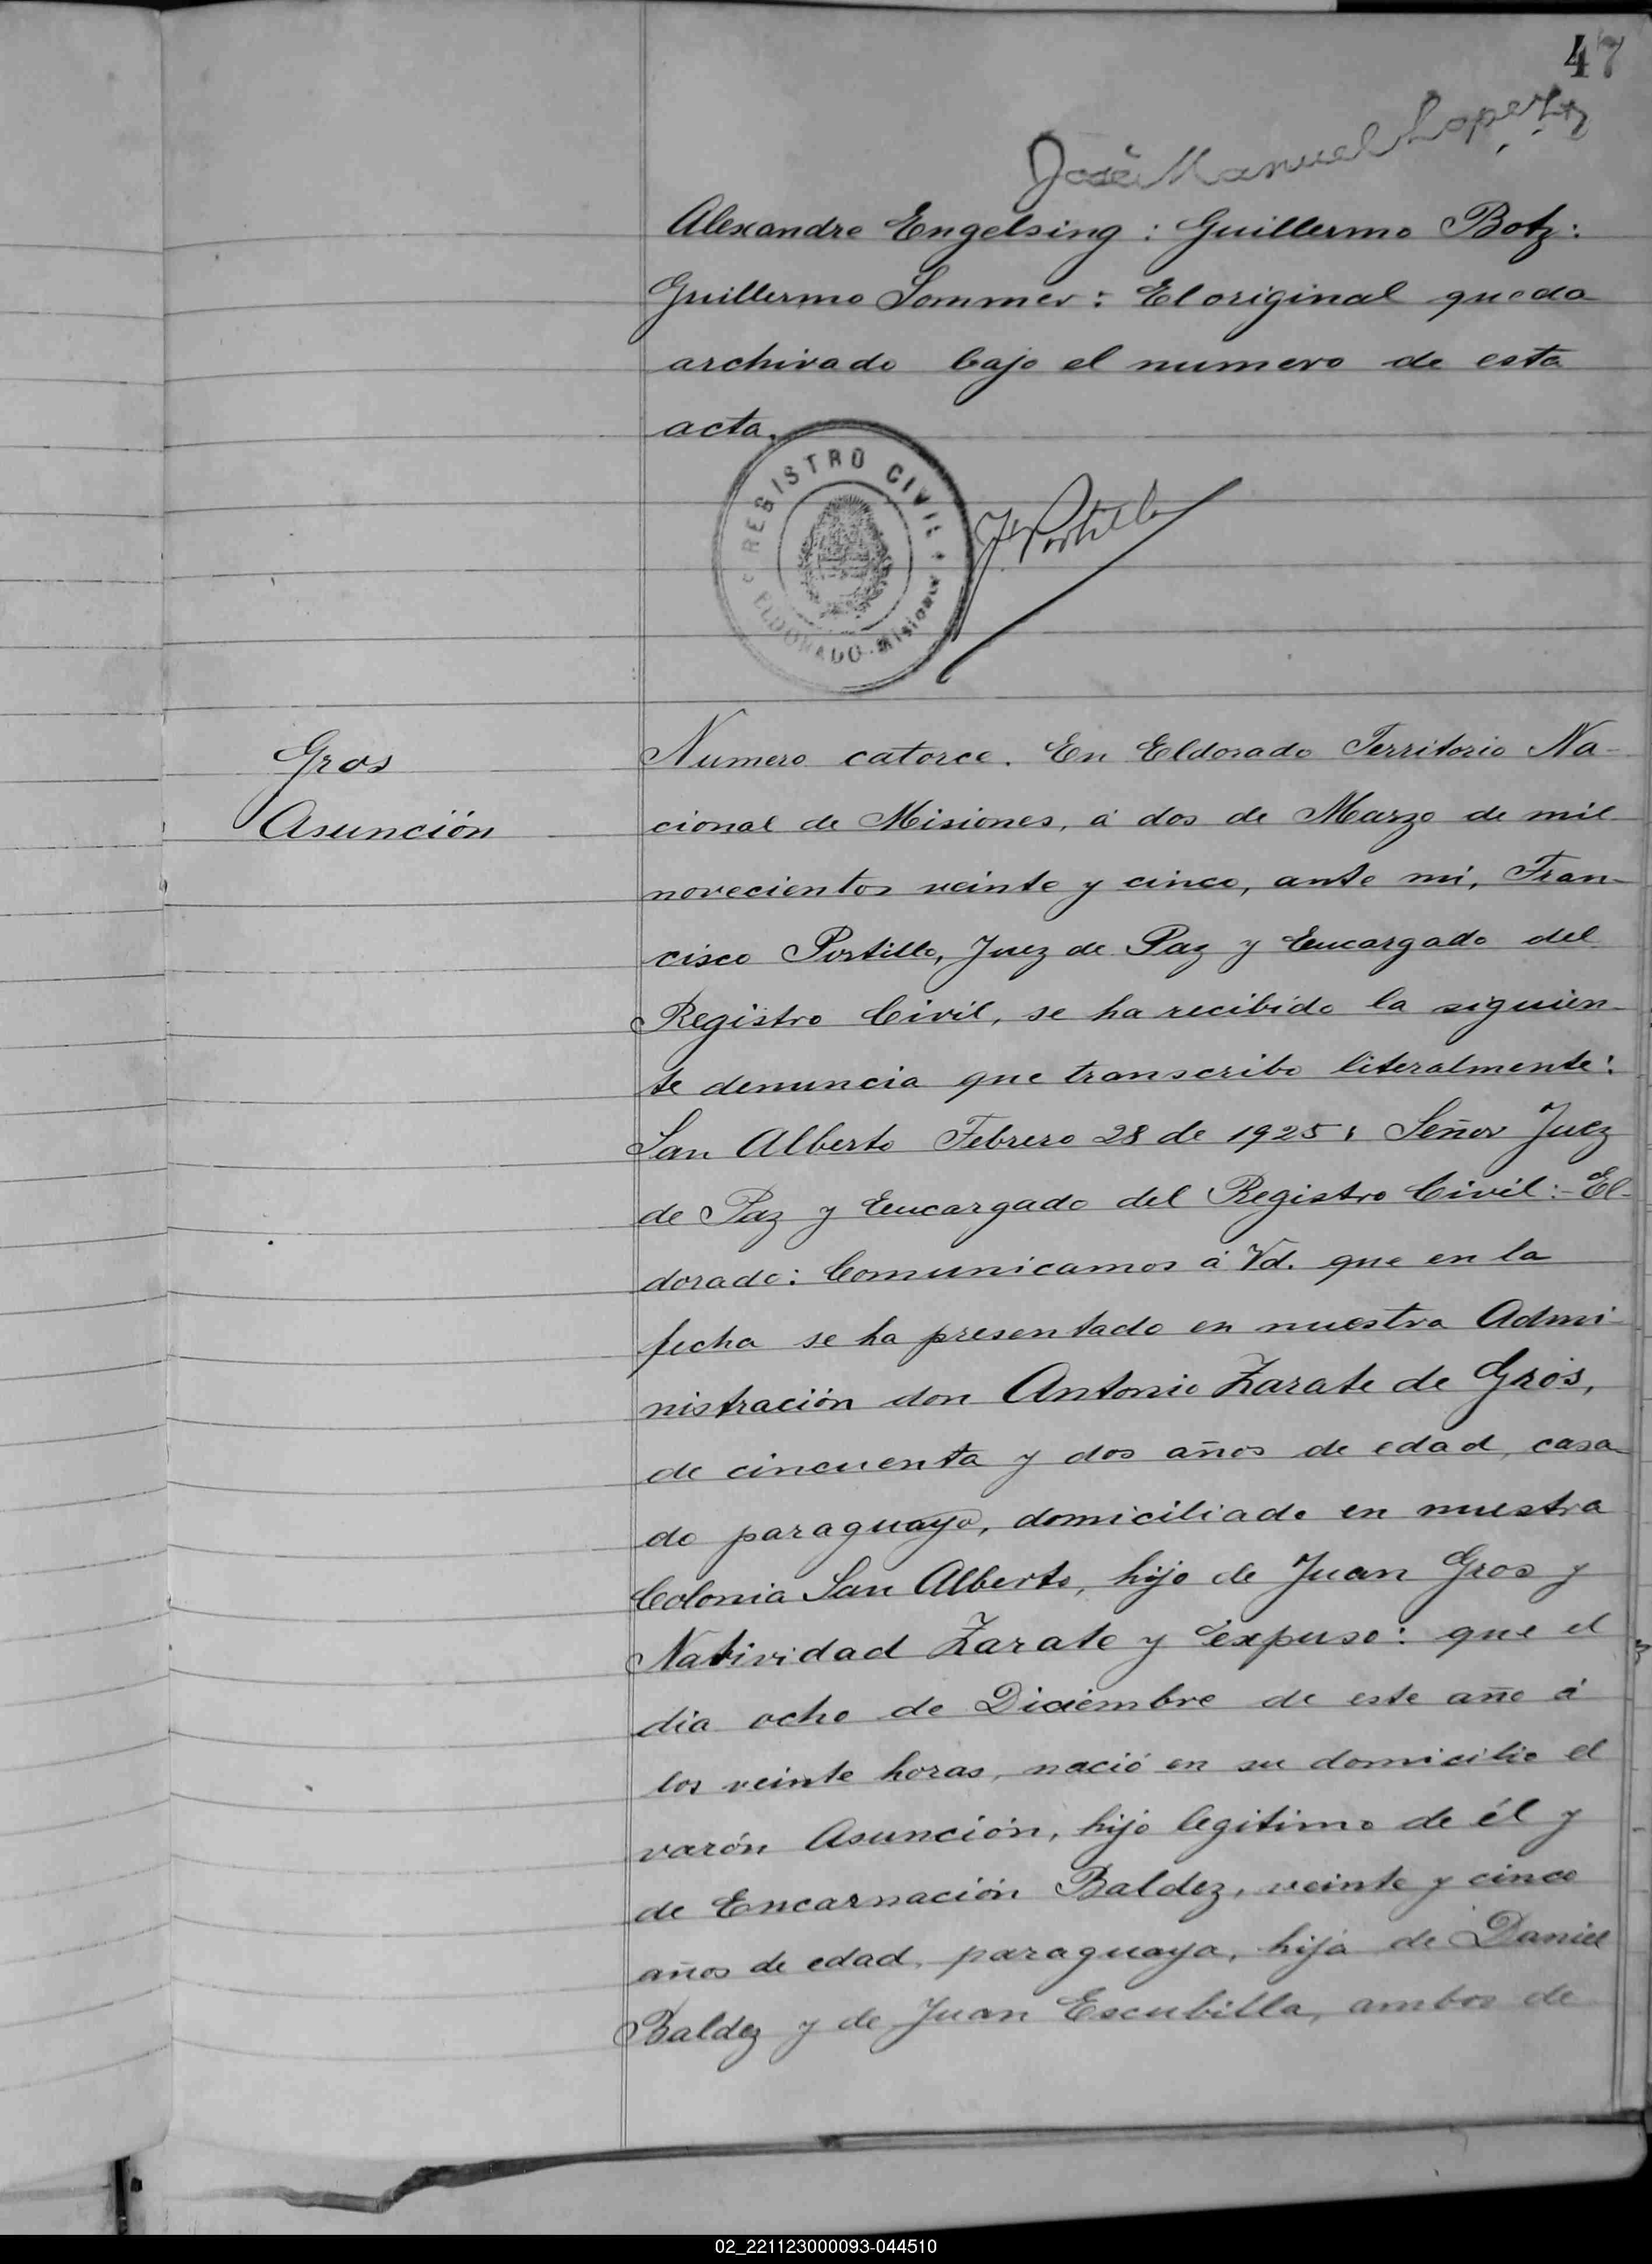 47
José Manuel Lopez
Alexandre Engelsing : Guillermo Botz :
Guillermo Sommer : El original queda
archivado bajo el numero de esta
acta.
REGISTRO CIVIL
ELDORADO - Misiones
F Portillo
Gros
Asunción
Numero catorce. En Eldorado Territorio Na-
cional de Misiones, á dos de Marzo de mil
novecientos veinte y cinco, ante mi, Fran-
cisco Portillo, Juez de Paz y Encargado del
Registro Civil, se ha recibido la siguien-
te denuncia que transcribo literalmente:
San Alberto Febrero 28 de 1925: Señor Juez
de Paz y Encargado del Registro Civil:- El-
dorado: Comunicamos á Vd. que en la
fecha se ha presentado en nuestra Admi-
nistración don Antonio Zarate de Gros,
de cincuenta y dos años de edad, casa-
do paraguayo, domiciliado en nuestra
Colonia San Alberto, hijo de Juan Gros y
Natividad Zarate y expuso: que el
dia ocho de Diciembre de este año á
los veinte horas, nació en su domicilio el
varón Asunción, hijo legitimo de él y
de Encarnación Baldez, veinte y cinco
años de edad, paraguaya, hija de Daniel
Baldez y de Juan Escubilla, ambos de
02_221123000093-044510